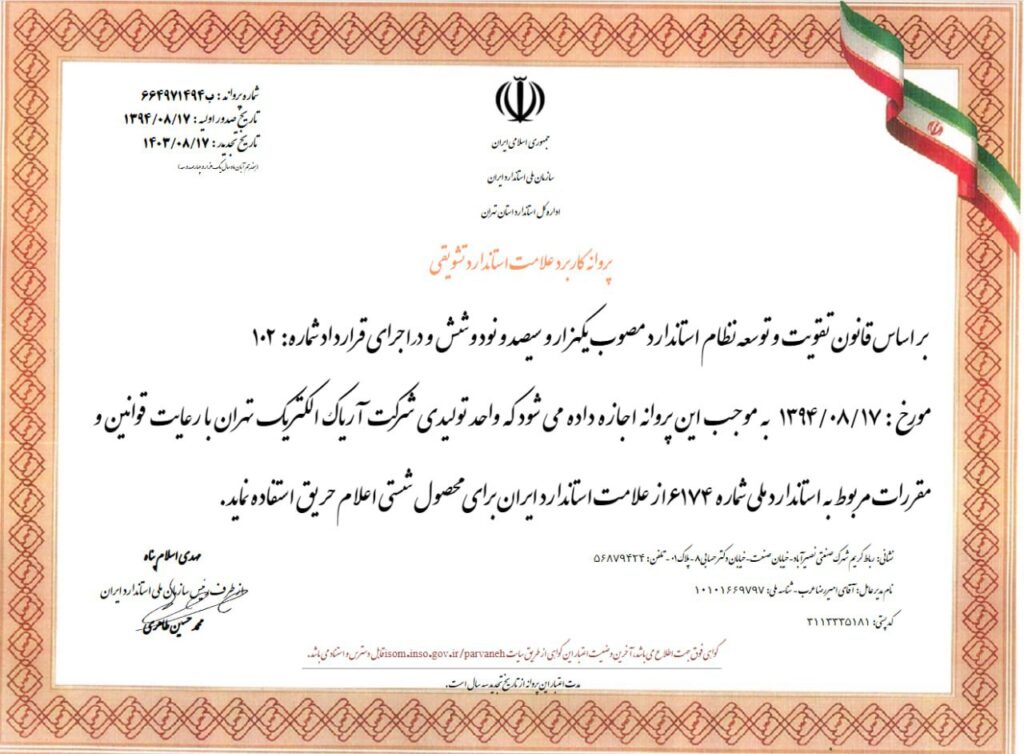 شماره پروانه: ب۶۶۴۹۷۱۴۹۴
تاریخ صدور اولیه: ۱۳۹۴/۰۸/۱۷
تاریخ تجدید: ۱۴۰۳/۰۸/۱۷
(هفدهم آبان ماه سال یک هزار و چهارصد و سه)
جمهوری اسلامی ایران
سازمان ملی استاندارد ایران
اداره کل استاندارد استان تهران
پروانه کاربرد علامت استاندارد تشویقی
بر اساس قانون تقویت و توسعه نظام استاندارد مصوب یکهزار و سیصد و نود و شش و در اجرای قرارداد شماره: ۱۰۲
مورخ: ۱۳۹۴/۰۸/۱۷ به موجب این پروانه اجازه داده می شود که واحد تولیدی شرکت آریاک الکتریک تهران با رعایت قوانین و
مقررات مربوط به استاندارد ملی شماره ۶۱۷۴ از علامت استاندارد ایران برای محصول شستی اعلام حریق استفاده نماید.
نشانی: رباط کریم شهرک صنعتی نصیرآباد-خیابان صنعت-خیابان دکتر حسابی۸-پلاک۰۱-تلفن: ۵۶۸۷۹۴۳۴
نام مدیرعامل: آقای امیررضا عرب-شناسه ملی: ۱۰۱۰۱۶۶۹۷۹۷
کد پستی: ۳۱۱۳۳۳۵۱۸۱
مهدی اسلام پناه
از طرف رئیس سازمان ملی استاندارد ایران
محمد حسین طاهری
گواهی فوق جهت اطلاع می باشد، آخرین وضعیت اعتبار این گواهی از طریق سایت isom.inso.gov.ir/parvaneh قابل دسترس و استناد می باشد.
مدت اعتبار این پروانه از تاریخ تجدید سه سال است.